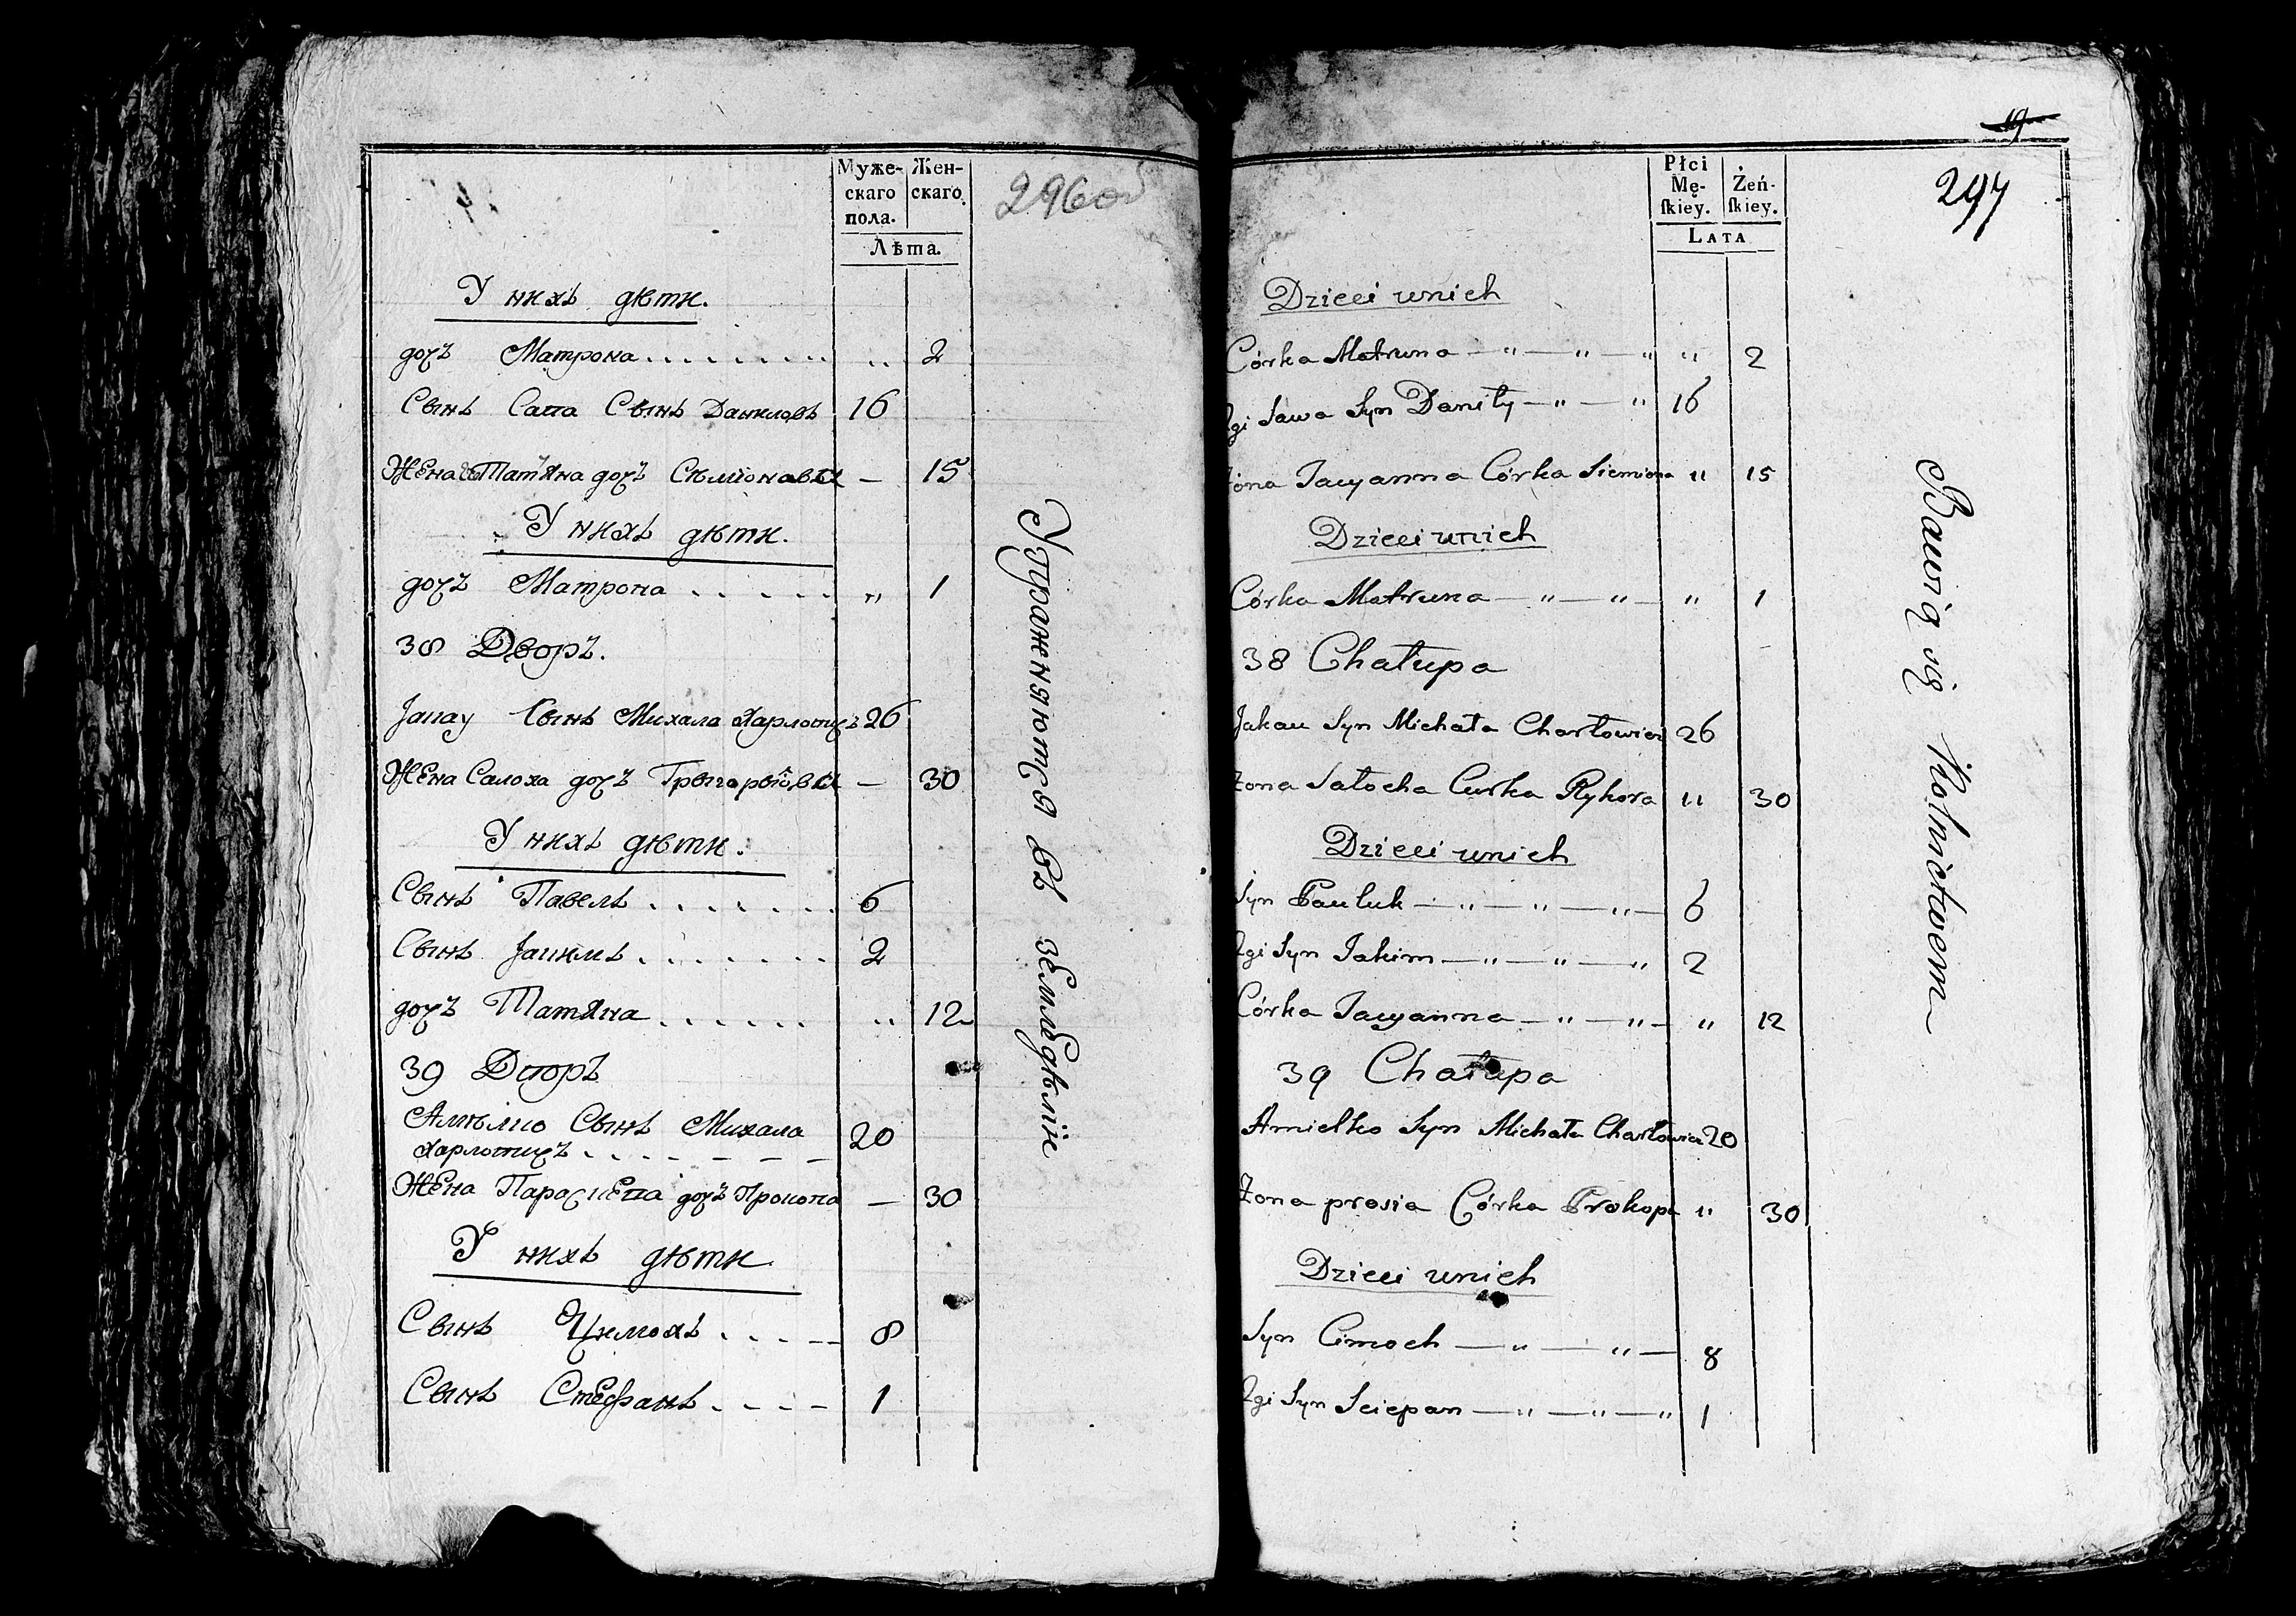 Муже-
скаго
пола.
Жен-
скаго.
Лѣта.
296об
У нихъ дѣти.
дочъ Матрона . . . . . . . „ 2
Сынъ Сава Сынъ Даниловъ 16
Жена Татяна дочъ Сѣміонава — 15
У нихъ дѣти.
дочъ Матрона . . . . . „ 1
38 Дворъ.
Јакау Сынъ Михала Харловичъ 26
Жена Салоха дочъ Грыгорыова — 30
У нихъ дѣти.
Сынъ Павелъ . . . . . . . 6
Сынъ Јакимъ . . . . . . . 2
дочъ Татяна . . . . . . „ 12
39 Дворъ
Амѣлко Сынъ Михала 20
Харловичъ . . . . . .
Жена Параскева дочъ Прокопа — 30
У нихъ дѣти
Сынъ Цимохъ . . . . 8
Сынъ Стефанъ . . . . 1
Упражняются въ земледѣліи
Płci
Mę-
ſkiey.
Żeń-
ſkiey.
LATA
19
297
Dzieci unich
Córka Matruna — „ — „ — „ „ 2
2gi Sawa Syn Daniły — „ — „ 16
Żona Tacyanna Córka Siemiona „ 15
Dzieci unich
Córka Matruna — „ — „ — „ 1
38 Chałupa
Jakau Syn Michała Charłowicz 26
Żona Sałocha Curka Rykora „ 30
Dzieci unich
Syn Pauluk — „ — „ — „ — 6
2gi Syn Jakim — „ — „ — „ 2
Córka Tacyanna — „ — „ — „ 12
39 Chałupa
Amielko Syn Michała Charłowicz 20
Żona prosia Córka Prokopa „ 30
Dzieci unich
Syn Cimoch — „ — „ — 8
2gi Syn Sciepan — „ — „ — „ 1
Bawią się Rolnictwem